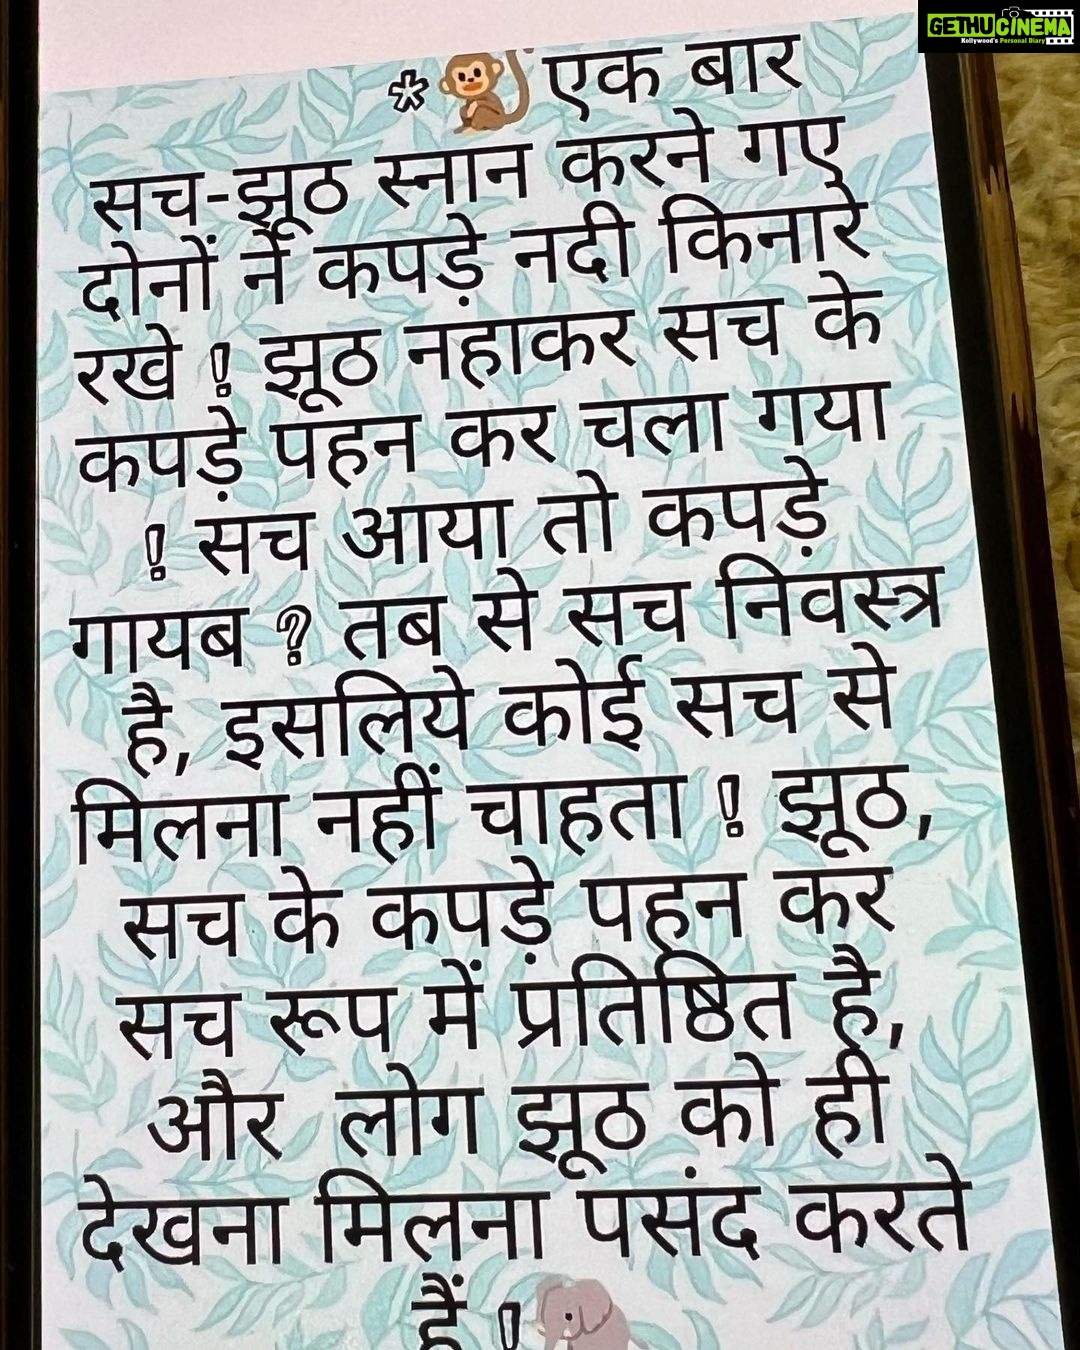 GETHUCINEMA
Kollywood's Personal Diary
* एक बार
सच-झूठ स्नान करने गए
दोनों ने कपड़े नदी किनारे
रखे ! झूठ नहाकर सच के
कपड़े पहन कर चला गया
! सच आया तो कपड़े
गायब ? तब से सच निवस्त्र
है, इसलिये कोई सच से
मिलना नहीं चाहता ! झूठ,
सच के कपड़े पहन कर
सच रूप में प्रतिष्ठित है,
और लोग झूठ को ही
देखना मिलना पसंद करते
हैं !